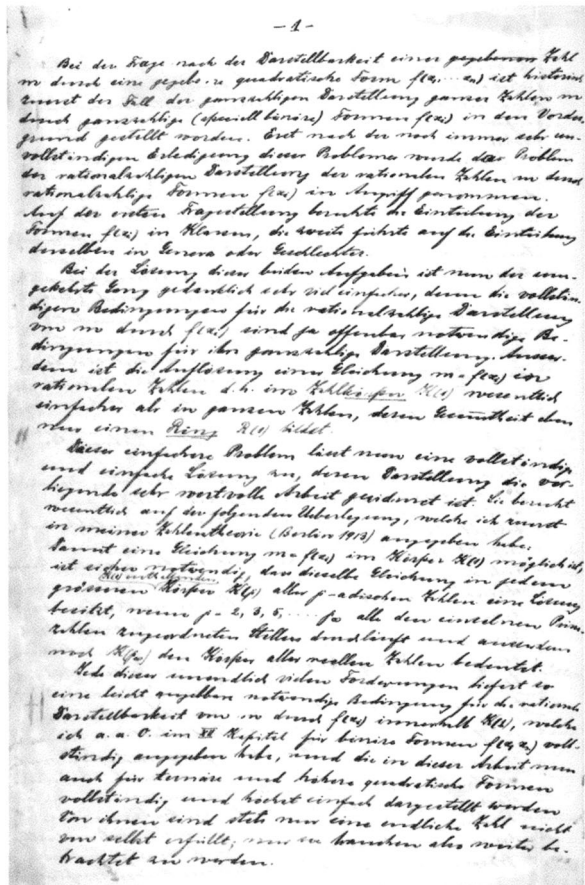 - 1 -
Bei der Frage nach der Darstellbarkeit einer gegebenen Zahl
m durch eine gegebene quadratische Form f(x1, ... xn) ist historisch
zuerst der Fall der ganzzahligen Darstellung ganzer Zahlen m
durch ganzzahlige (speciell binäre) Formen f(xi) in den Vorder-
grund gestellt worden. Erst nach der noch immer sehr un-
vollständigen Erledigung dieses Problemes wurde das Problem
der rationalzahligen Darstellung der rationalen Zahlen m durch
rationalzahlige Formen f(xi) in Angriff genommen.
Auf der ersten Fragestellung beruhte die Einteilung der
Formen f(xi) in Klassen, die zweite führte auf die Einteilung
derselben in Genera oder Geschlechter.
Bei der Lösung dieser beiden Aufgaben ist nun der um-
gekehrte Gang gedanklich sehr viel einfacher, denn die vollstän-
digen Bedingungen für die rationalzahlige Darstellung
von m durch f(xi) sind ja offenbar notwendige Be-
dingungen für ihre ganzzahlige Darstellung. Ausser-
dem ist die Auflösung einer Gleichung m = f(xi) in
rationalen Zahlen d.h. im Zahlkörper K(1) wesentlich
einfacher als in ganzen Zahlen, deren Gesamtheit eben
nur einen Ring R(1) bildet.
Dieses einfachere Problem lässt nun eine vollständige
und einfache Lösung zu, deren Darstellung die vor-
liegende sehr wertvolle Arbeit gewidmet ist. Sie beruht
wesentlich auf der folgenden Ueberlegung, welche ich zuerst
in meiner Zahlentheorie (Berlin 1913) angegeben habe:
Damit eine Gleichung m = f(xi) im Körper K(1) möglich ist,
ist sicher notwendig, dass dieselbe Gleichung in jedem
K(1) enthaltenden
grösseren Körper K(p) aller p-adischen Zahlen eine Lösung
besitzt, wenn p = 2, 3, 5, ... p∞ alle den einzelnen Prim-
zahlen zugeordneten Stellen durchläuft und ausserdem
noch K(p∞) den Körper aller reellen Zahlen bedeutet.
Jede dieser unendlich vielen Forderungen liefert so
eine leicht angebbare notwendige Bedingung für die rationale
Darstellbarkeit von m durch f(xi) innerhalb K(1), welche
ich a. a. O. im XII Kapitel für binäre Formen f(x1 x2) voll-
ständig angegeben habe, und die in dieser Arbeit nun
auch für ternäre und höhere quadratische Formen
vollständig und höchst einfach dargestellt werden
Von ihnen sind stets nur eine endliche Zahl nicht
von selbst erfüllt; nur sie brauchen also weiter be-
trachtet zu werden.